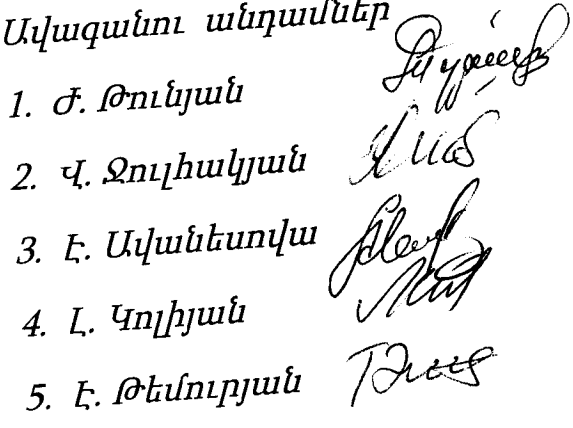 Ավագանու անդամներ
1. Ժ. Թունյան
2. Վ. Ջուլհակյան
3. Է. Ավանեսովա
4. Լ. Կոլիյան
5. Է. Թեմուրյան